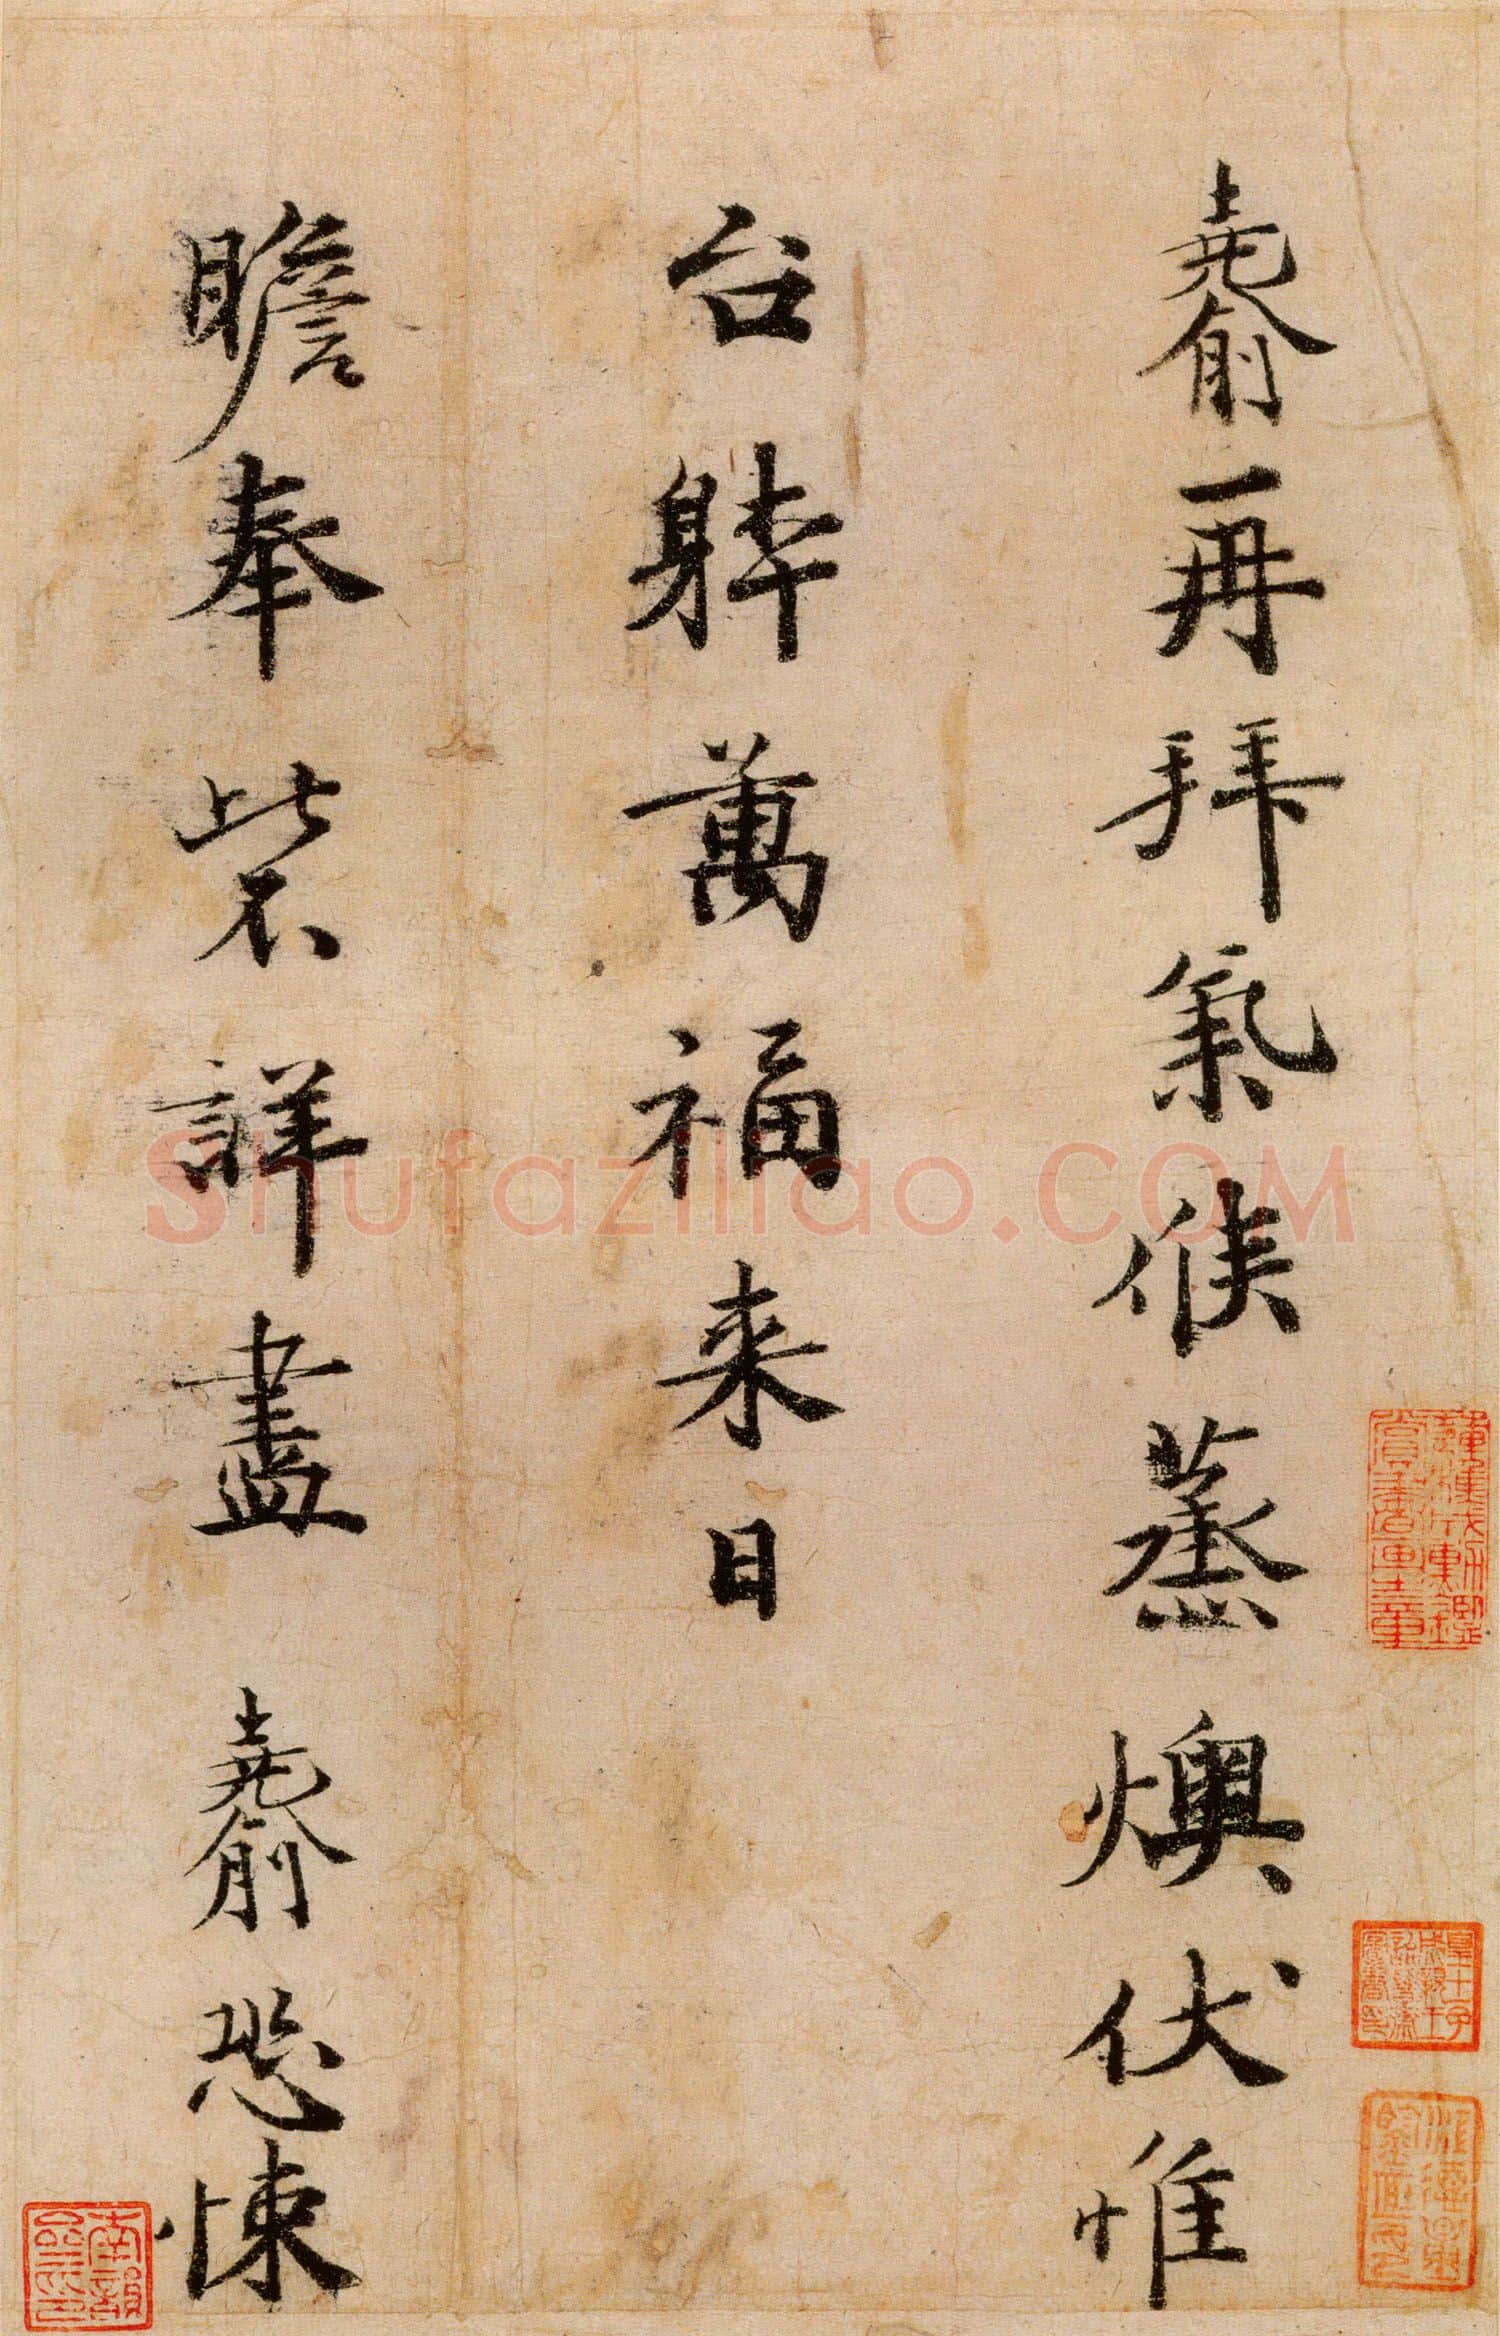 堯俞再拜氣候蒸燠伏惟
台躰萬福来日
瞻奉此不詳盡 堯俞恐悚
Shufaziliao.COM